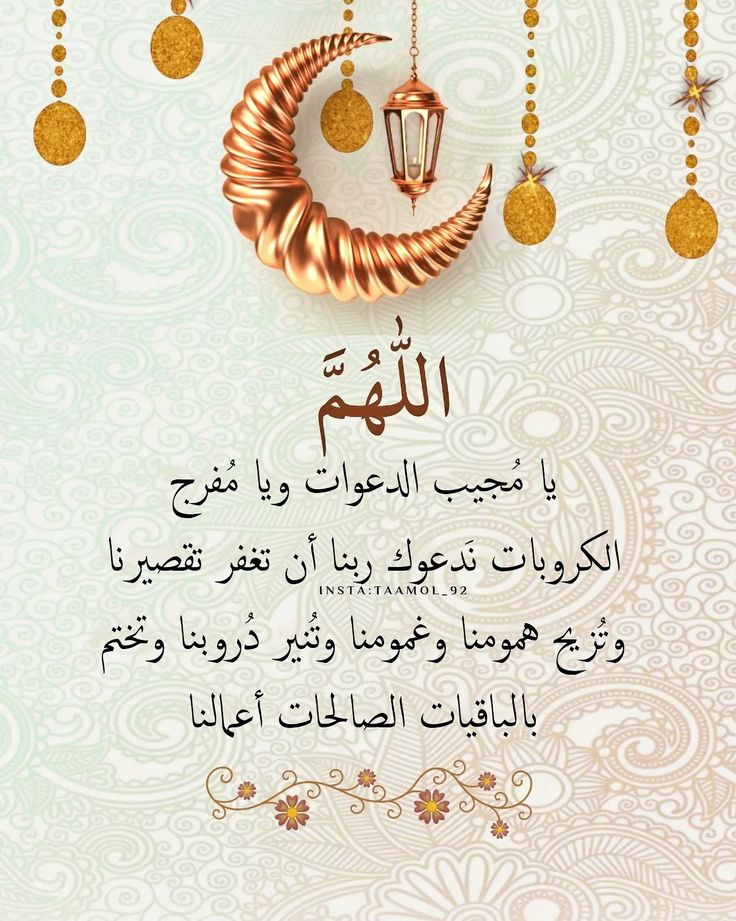 اللّٰهُمَّ
يا مُجيب الدعوات ويا مُفرج
الكروبات نَدعوك ربنا أن تغفر تقصيرنا
INSTA:TAAMOL_92
وتُزيح همومنا وغمومنا وتُنير دُروبنا وتختم
بالباقيات الصالحات أعمالنا